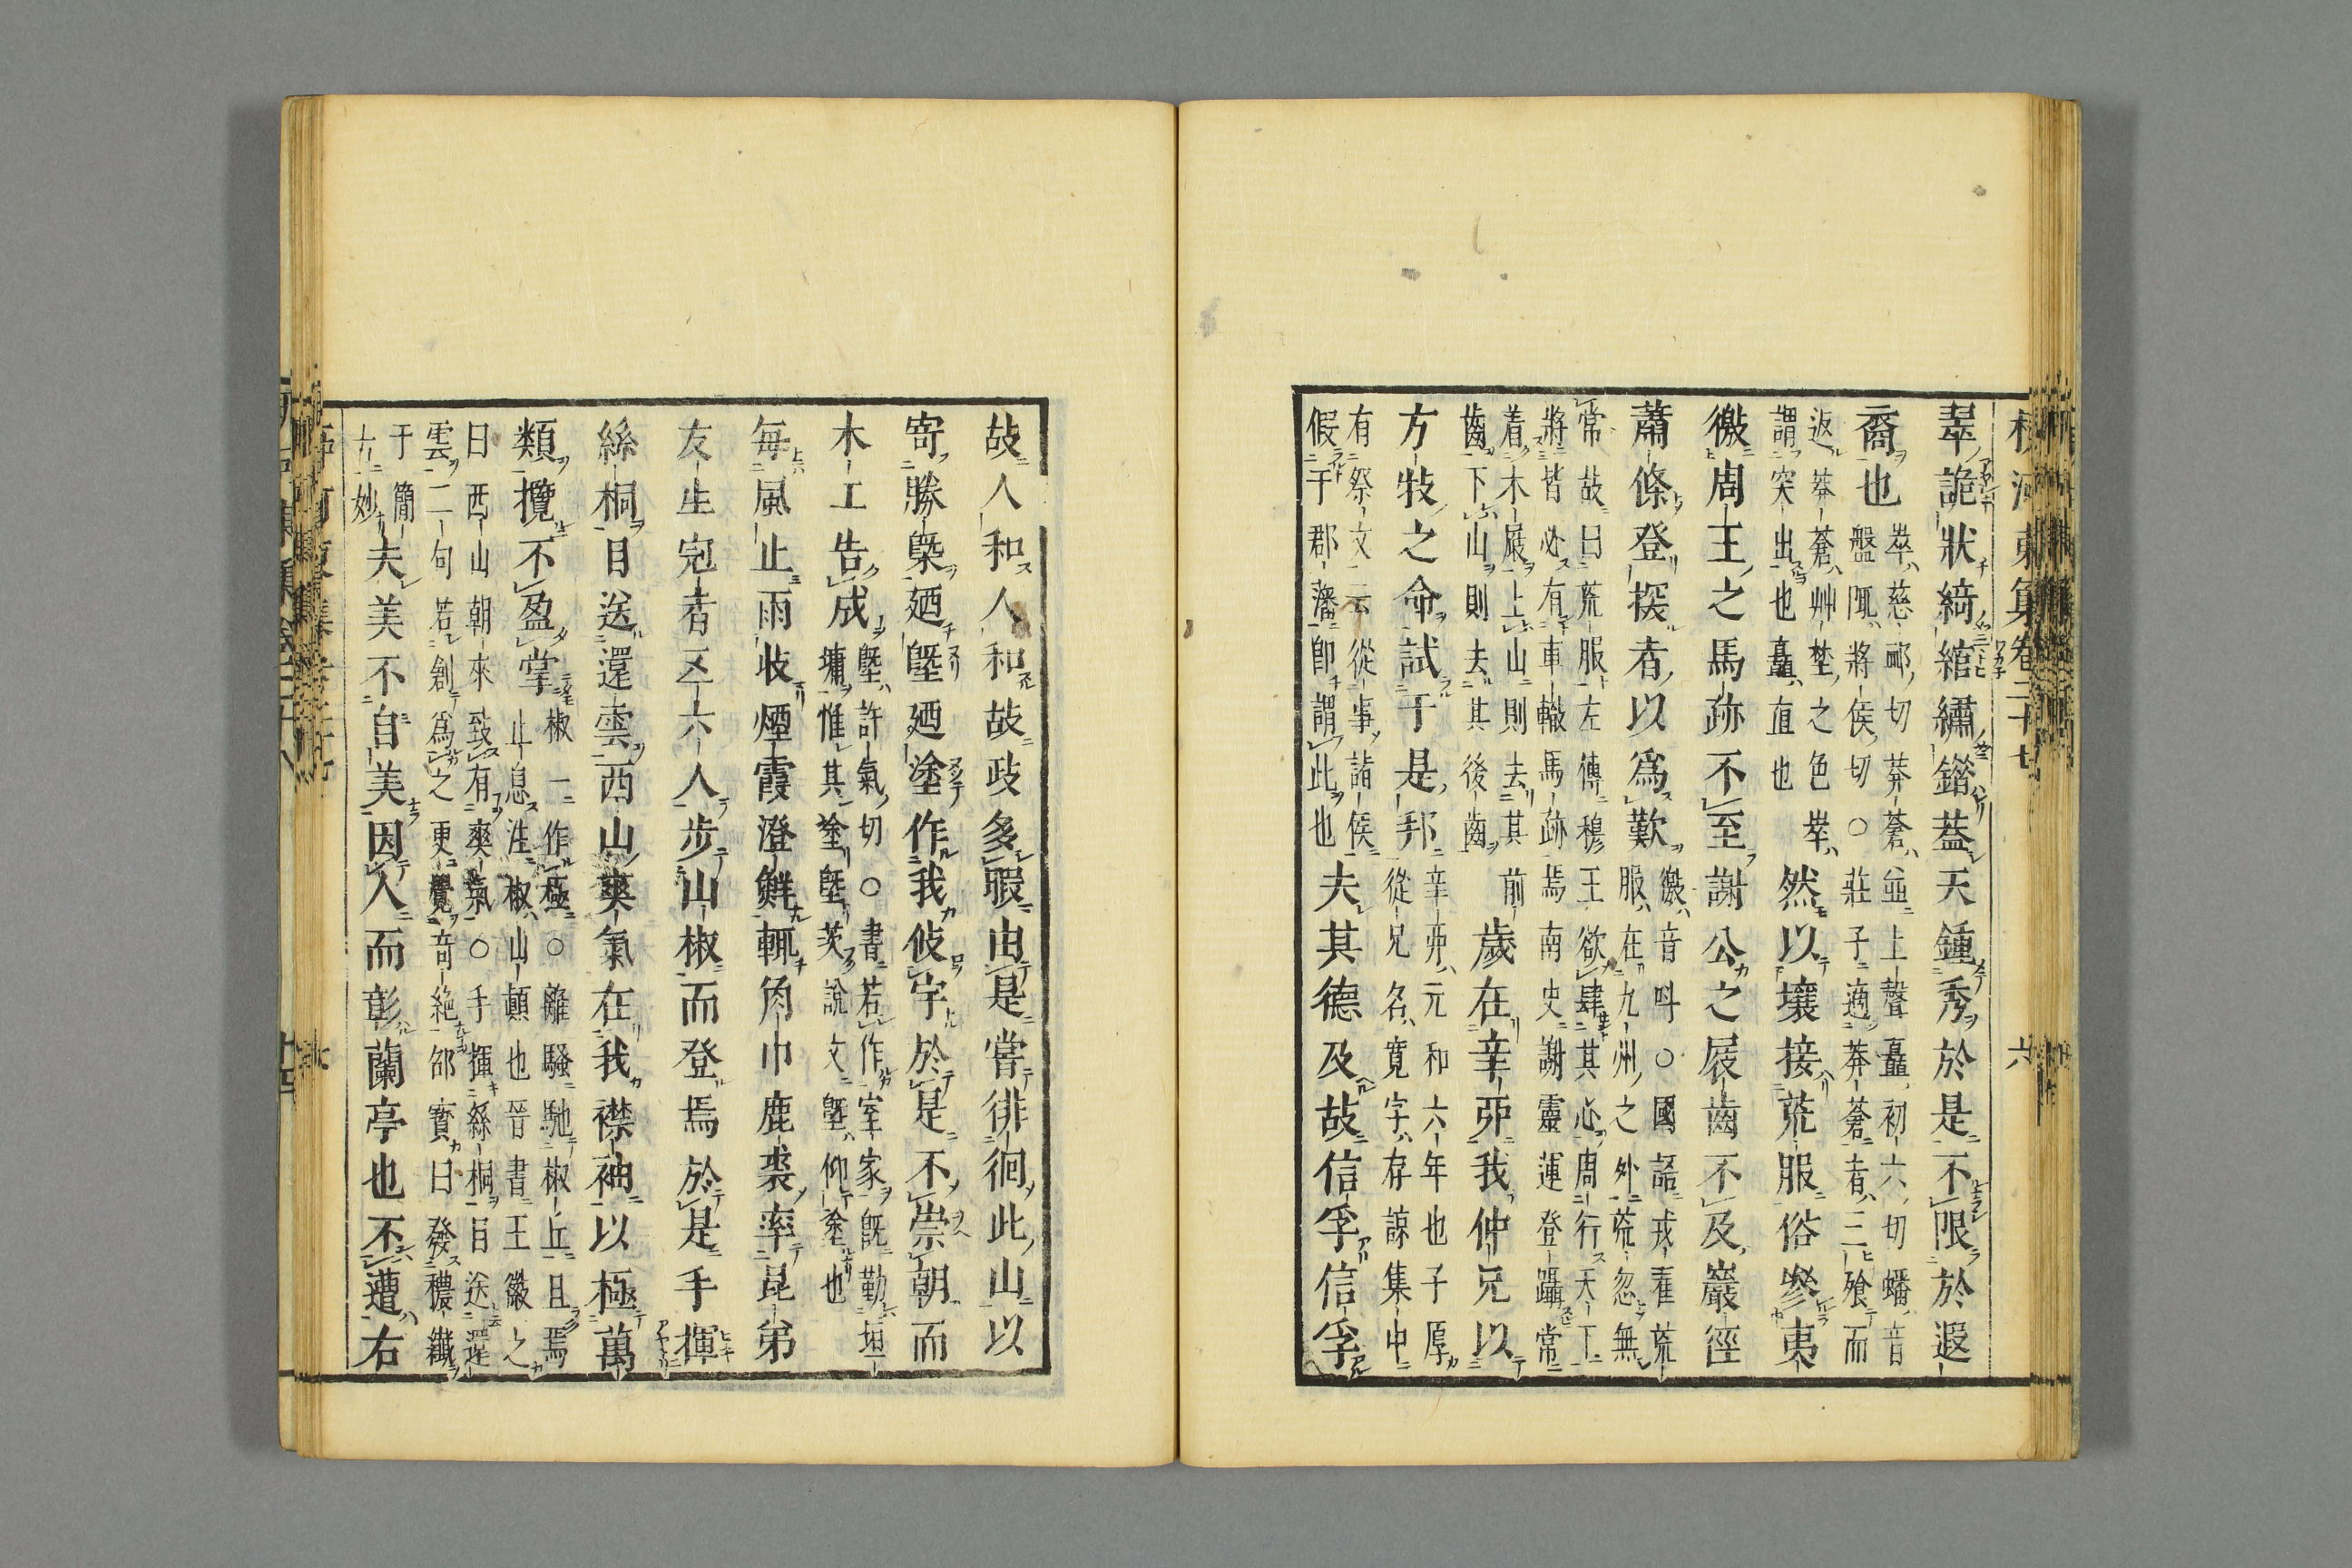 柳河東集卷二十七 六
翠詭狀綺綰繡錯蓋天鍾秀於是不限於遐
裔也
崒慈䘏切莽蒼並上聲矗初六切蟠音
盤 將侯切○莊子適莽蒼者三飡而
返莽蒼艸埜之色崒
謂突出也矗直也
然以壤接荒服俗參夷
徼周王之馬跡不至謝公之屐齒不及巖徑
蕭條登探者以爲歎
徼音叫○國語戎翟荒
服在九州之外荒忽無
常故曰荒服左傳穆王欲肆其心周行天下
將皆必有車轍馬跡焉南史謝靈運登躡常
着木屐上山則去其前
齒下山則去其後齒
歲在辛卯我仲兄以
方牧之命試于是邦
辛卯元和六年也子厚
從兄名寬字存諒集中
有祭文云從事諸侯
假于郡藩即謂此也
夫其德及故信孚信孚
故人和人和故政多暇由是嘗徘徊此山以
寄勝槩廼塈廼塗作我攸宇於是不崇朝而
木工告成
塈許氣切○書若作室家既勤垣
墉惟其塗塈茨說文塈仰塗也
每風止雨收煙霞澄鮮輒角巾鹿裘率昆弟
友生冠者五六人步山椒而登焉於是手揮
絲桐目送還雲西山爽氣在我襟袖以極萬
類攬不盈掌
椒一作極○離騷馳椒丘且焉
止息注椒山顛也晉書王徽之
曰西山朝來致有爽氣○手揮絲桐目送還
雲二句若創爲之更覺奇絕邵寶曰發穠纖
于簡
古妙
夫美不自美因人而彰蘭亭也不遭右